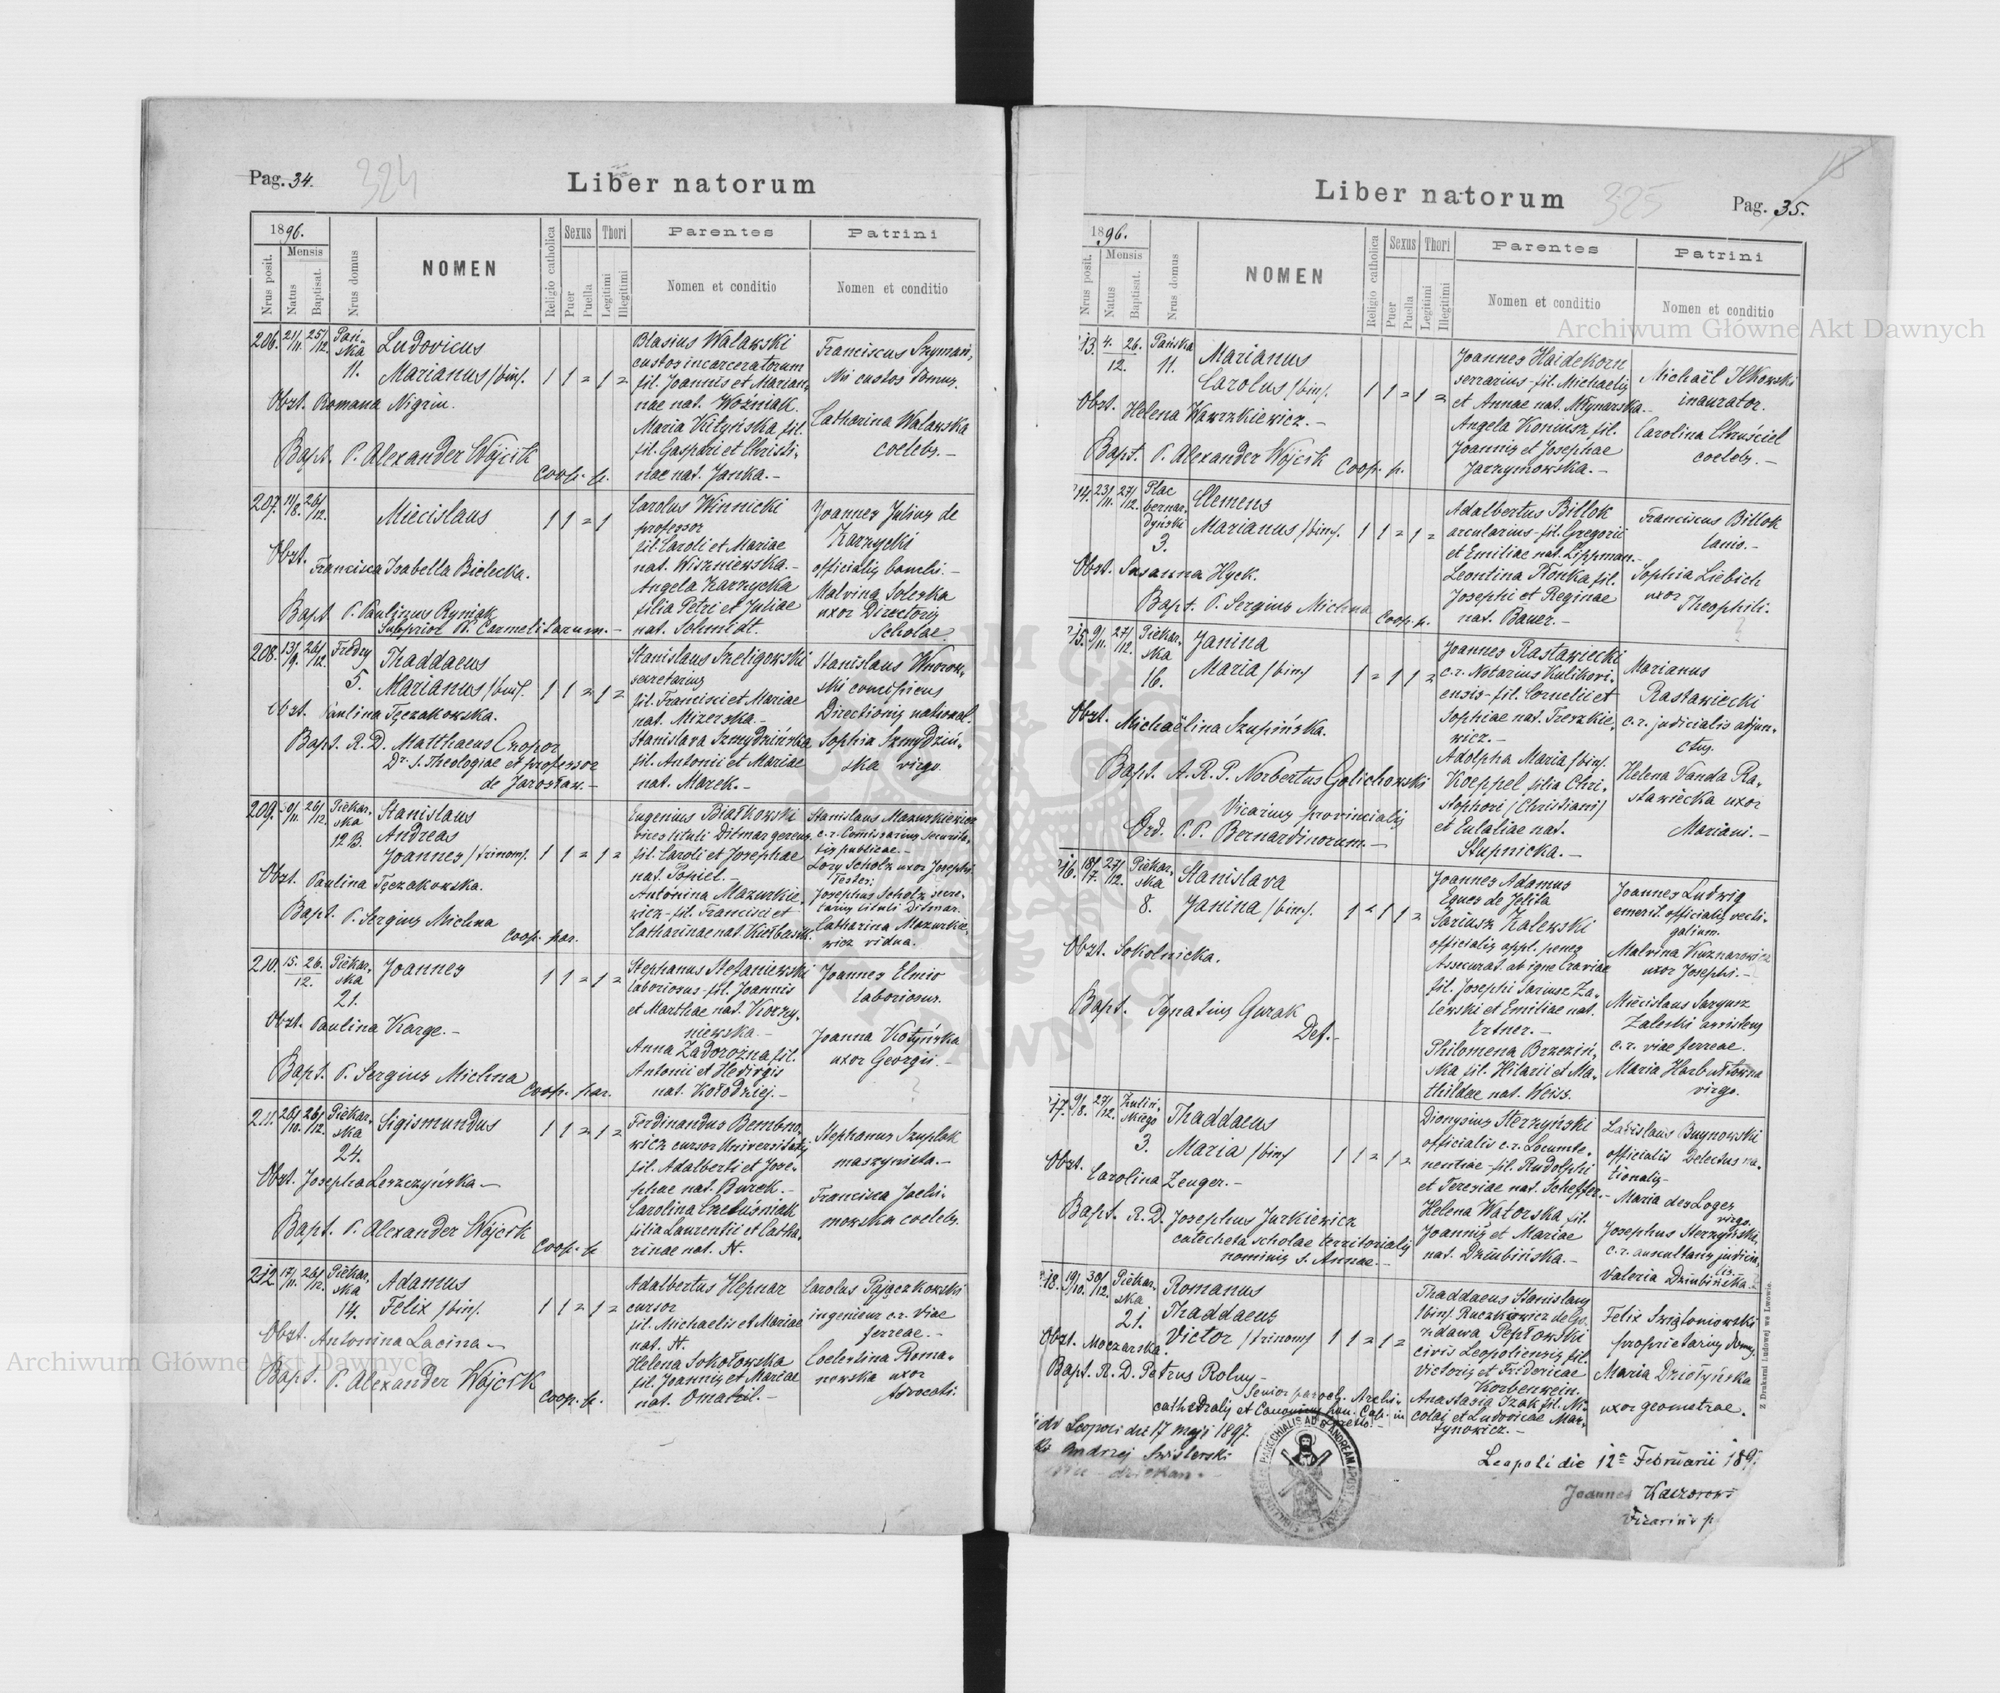 Pag. 34.
324
Liber natorum
1896.
Nrus posit.
Mensis
Natus
Baptisat.
Nrus domus
NOMEN
Religio catholica
Sexus
Puer
Puella
Thori
Legitimi
Illegitimi
Parentes
Nomen et conditio
Patrini
Nomen et conditio
206. 21/11. 25/12. Pań-
ska
11.
Ludovicus
Marianus /bin/. 1 1 = 1 =
Obst. Romana Nigrin.
Bapt. P. Alexander Wójcik
Coop. p.
Blasius Walawski
custos incarceratorum
fil. Joannis et Marian-
nae nat. Woźniak.
fil. Gaspari et Christi-
nae nat. Janka. -
Franciscus Szymań-
ski custos domus.
Catharina Walawska
coelebs. -
207. 11/8. 26/12.
Miecislaus 1 1 = 1
Obst. Francisca Isabella Bielecka.
Bapt. P. Paulinus Ryniak
Subprior Carmelitarum. -
Carolus Winnicki
professor
fil. Caroli et Mariae
nat. Wiszniewska. -
Angela Zarzycka
filia Petri et Juliae
nat. Schmidt.
Joannes Julius de
Zarzycki
officialis -
Malvina Soleska
uxor Directoris
Scholae.
208. 13/9. 26/12. Fredry
5.
Thaddaeus
Marianus /bin/. 1 1 = 1 =
Obst. Paulina Tęczakowska.
Bapt. R. D. Matthaeus Czopor
Dr. S. Theologiae et professor
de Jarosław. -
Stanislaus Szeligowski
secretarius
fil. Francisci et Mariae
nat. Mizerska. -
Stanislava Szmydzińska
fil. Antonii et Mariae
nat. Marek. -
Stanislaus Wnorow-
ski concipiens
Directionis national.
Sophia Szmydziń-
ska virgo.
209. 26/12. Piekar-
ska
12 B.
Stanislaus
Andreas
Joannes /trinom/. 1 1 = 1 =
Obst. Paulina Tęczakowska.
Bapt. P. Sergius Michna
Coop. par.
Eugenius Białkowski
vices tituli Ditmar gerens
fil. Caroli et Josephae
nat. Popiel. -
Antonina Mazurkie-
wicz - fil. Francisci et
Catharinae nat.
Stanislaus Mazurkiewicz
c. r. Comissarius securita-
tis publicae. -
Lory Scholz uxor Josephi
Testes:
Josephus Scholz secre-
tarius tituli Ditmar.
Catharina Mazurkie-
wicz vidua.
210. 15. 26.
12.
Piekar-
ska
21.
Joannes 1 1 = 1 =
Obst. Paulina Karge. -
Bapt. P. Sergius Michna
Coop. par.
Stephanus Stefaniewski
laboriosus - fil. Joannis
et Marthae nat. Korzy-
niewska. -
Anna Zadorożna fil.
Antonii et Hedvigis
nat. Kołodziej. -
Joannes Elmio
laboriosus.
Joanna Kotyńska
uxor Georgii. -
211. 26/10. 26/12. Piekar-
ska
24.
Sigismundus 1 1 = 1 =
Obst. Josepha Leszczyńska -
Bapt. P. Alexander Wójcik
Coop. p.
Ferdinandus Bembno-
wicz cursor Universitatis
fil. Adalberti et Jose-
phae nat. Burek. -
Carolina
filia Laurentii et Catha-
rinae nat. N.
Stephanus Szuplak
maszynista. -
Francisca Jachi-
mowska coelebs.
212. 17/11. 26/12. Piekar-
ska
14.
Adamus
Felix /bin/. 1 1 = 1 =
Obst. Antonina Lacina -
Bapt. P. Alexander Wójcik
Coop. p.
Adalbertus Hepnar
cursor
fil. Michaelis et Mariae
nat. N.
Helena Sokołowska
fil. Joannis et Mariae
nat. -
Carolus Pajączkowski
ingenieur c. r. Viae
ferreae. -
Coelestina Roma-
nowska uxor
Advocati.
Liber natorum
325
Pag. 35.
18
1896.
Nrus posit.
Mensis
Natus
Baptisat.
Nrus domus
NOMEN
Religio catholica
Sexus
Puer
Puella
Thori
Legitimi
Illegitimi
Parentes
Nomen et conditio
Patrini
Nomen et conditio
13. 4. 26.
12.
Pańska
11.
Marianus
Carolus /bin/. 1 1 = 1 =
Obst. Helena Wawrzkiewicz. -
Bapt. P. Alexander Wójcik Coop. p.
Joannes Haidekorn
serrarius - fil. Michaelis
et Annae nat. Młynarska. -
Angela Koniusz fil.
Joannis et Josephae
Jarzymowska. -
Michaël Ilkowski
inaurator.
Carolina Chruściel
coelebs. -
14. 23/11. 27/12. Plac
bernar-
dyński
3.
Clemens
Marianus /bin/. 1 1 = 1 =
Obst. Susanna Hyck.
Bapt. P. Sergius Michna Coop. p.
Adalbertus Billok
arcularius - fil. Gregorii
et Emiliae nat. Lippman. -
Leontina Płonka fil.
Josephi et Reginae
nat. Bauer. -
Franciscus Billok
lanio. -
Sophia Liebich
uxor
Theophili.
15. 9/11. 27/12. Piekar-
ska
16.
Janina
Maria /bin/ 1 = 1 1 =
Obst. Michaëlina Szupińska.
Bapt. A. R. P. Norbertus Golichowski
Vicarius provincialis
Ord. P. P. Bernardinorum. -
Joannes Rastawiecki
c. r. Notarius Kulikovi-
ensis - fil. Cornelii et
Sophiae nat. Treszkie-
wicz. -
Adolpha Maria /bin/.
Koeppel filia Chri-
stophori /Christiani/
et Eulaliae nat.
Stupnicka. -
Marianus
Rastawiecki
c. r. judicialis adjun-
ctus.
Helena Vanda Ra-
stawiecka uxor
Mariani. -
16. 18/7. 27/12. Piekar-
ska
8.
Stanislava
Janina /bin/. 1 = 1 1 =
Obst. Sokolnicka.
Bapt. Ignatius Gurak
Def. -
Joannes Adamus
Eques de Jelita
Sariusz Zalewski
officialis appl. penes
Assecurat. ab igne Craviae
fil. Josephi Sariusz Za-
lewski et Emiliae nat.
Ertner. -
Philomena Brzeziń-
ska fil. Hilarii et Ma-
thildae nat. Weiss.
Joannes Ludwig
emerit. officialis vecti-
galium.
Malvina Kuznarowicz
uxor Josephi. -
Miecislaus Saryusz
Zaleski assistens
c. r. viae ferreae.
Maria Harbutówna
virgo.
17. 9/8. 27/12. Zuliń-
skiego
3.
Thaddaeus
Maria /bin/ 1 1 = 1 =
Obst. Carolina Zenger. -
Bapt. R. D. Josephus Jurkiewicz
catecheta scholae territorialis
nominis S. Annae. -
Dionysius Sterzyński
officialis c. r. Locumte-
nentiae - fil. Rudolphi
et Teresiae nat. Scheffer. -
Helena Watorska fil.
Joannis et Mariae
nat. Dziubińska. -
Ladislaus Buynowski
officialis Delectus na-
tionalis -
Maria des Loges
virgo.
Josephus Sterzyński
c. r. auscultans judicia-
lis. -
Valeria Dziubińska.
18. 19/10. 30/12. Piekar-
ska
21.
Romanus
Thaddaeus
Victor /trinom/ 1 1 = 1 =
Obst. Moczarska.
Bapt. R. D. Petrus Rolny -
Senior paroch. Archi-
cathedralis et Canonicus hon. Cap. in
Thaddaeus Stanislaus
/bin/. Ruczkiowicz de Go-
zdawa Pepłowski
civis Leopoliensis fil.
Victoris et Fridericae
Korbenwein.
Anastasia Izak fil. Ni-
colai et Ludovicae Mar-
tynowicz. -
Felix Świątoniowski
proprietarius domus.
Maria Działyńska
uxor geometrae.
Leopoli die 17 maji 1897.
Andrzej Świsterski
dziekan
Leopoli die 12 Februarii 189
Joannes
Vicarius p
Z Drukarni Ludowej we Lwowie.
Archiwum Główne Akt Dawnych
Archiwum Główne Akt Dawnych